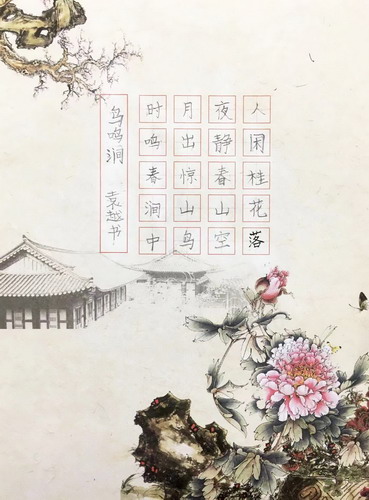 人闲桂花落
夜静春山空
月出惊山鸟
时鸣春涧中
鸟鸣涧 袁越书